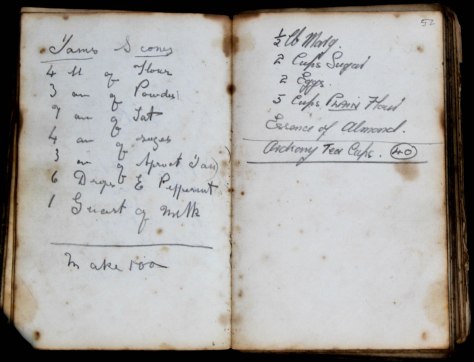 Jams Scones
4 lb of Flour
3 oz of Powder
9 oz of Fat
4 oz of suger
3 oz of Aprocot Jam
6 Drops E Peppermint
1 Quart of Milk
Make 100
52
½ lb Marg.
2 Cups Sugar
2 Eggs.
5 Cups PLAIN Flour
Essence of Almond.
Ordinary Tea Cups. 40